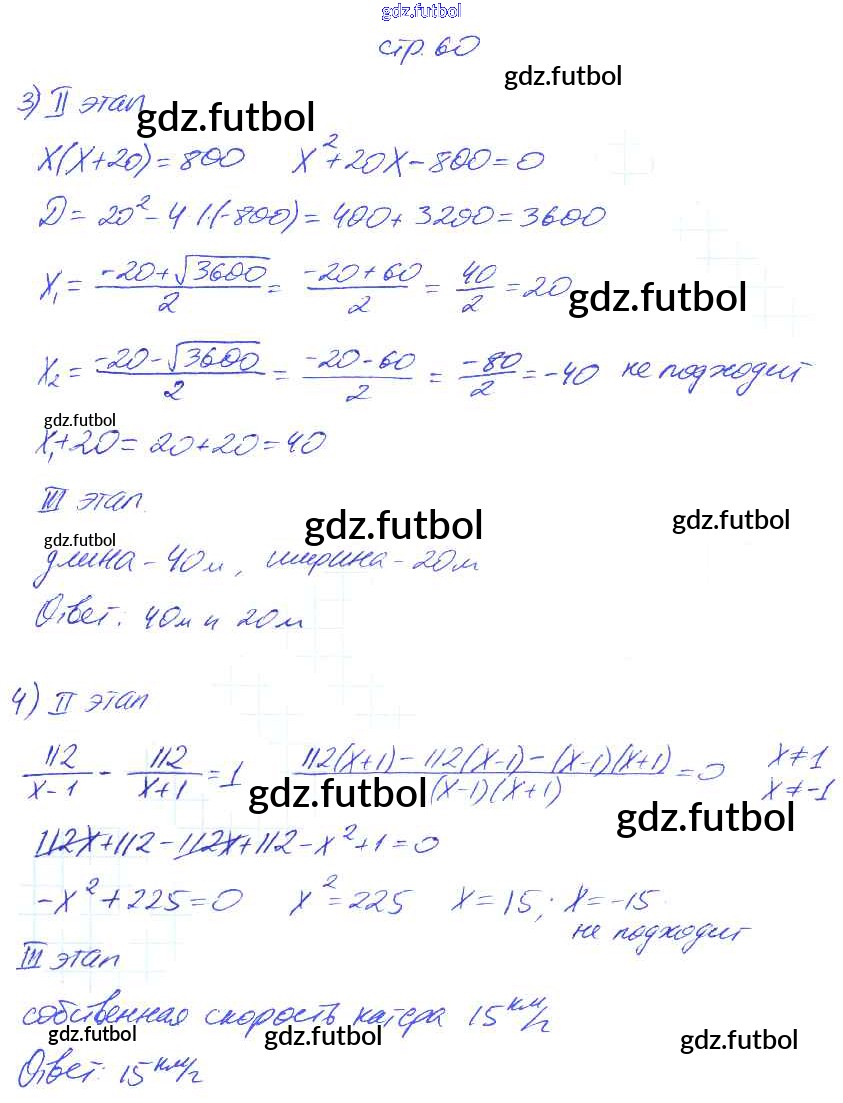 gdz.futbol
стр. 60
gdz.futbol
3) II этап
gdz.futbol
x(x+20)=800 x²+20x-800=0
D=20²-4·1·(-800)=400+3200=3600
x₁=(-20+√3600)/2=(-20+60)/2=40/2=20
gdz.futbol
x₂=(-20-√3600)/2=(-20-60)/2=-80/2=-40 не подходит
gdz.futbol
x₁+20=20+20=40
III этап.
gdz.futbol gdz.futbol
gdz.futbol
длина-40м, ширина-20м
Ответ: 40м и 20м
4) II этап
112/(x-1) - 112/(x+1) = 1 (112(x+1)-112(x-1)-(x-1)(x+1))/((x-1)(x+1))=0 x≠1
x≠-1
gdz.futbol
gdz.futbol
112x+112-112x+112-x²+1=0
-x²+225=0 x²=225 x=15; x=-15
не подходит
III этап
собственная скорость катера 15 км/ч
gdz.futbol gdz.futbol gdz.futbol
Ответ: 15 км/ч